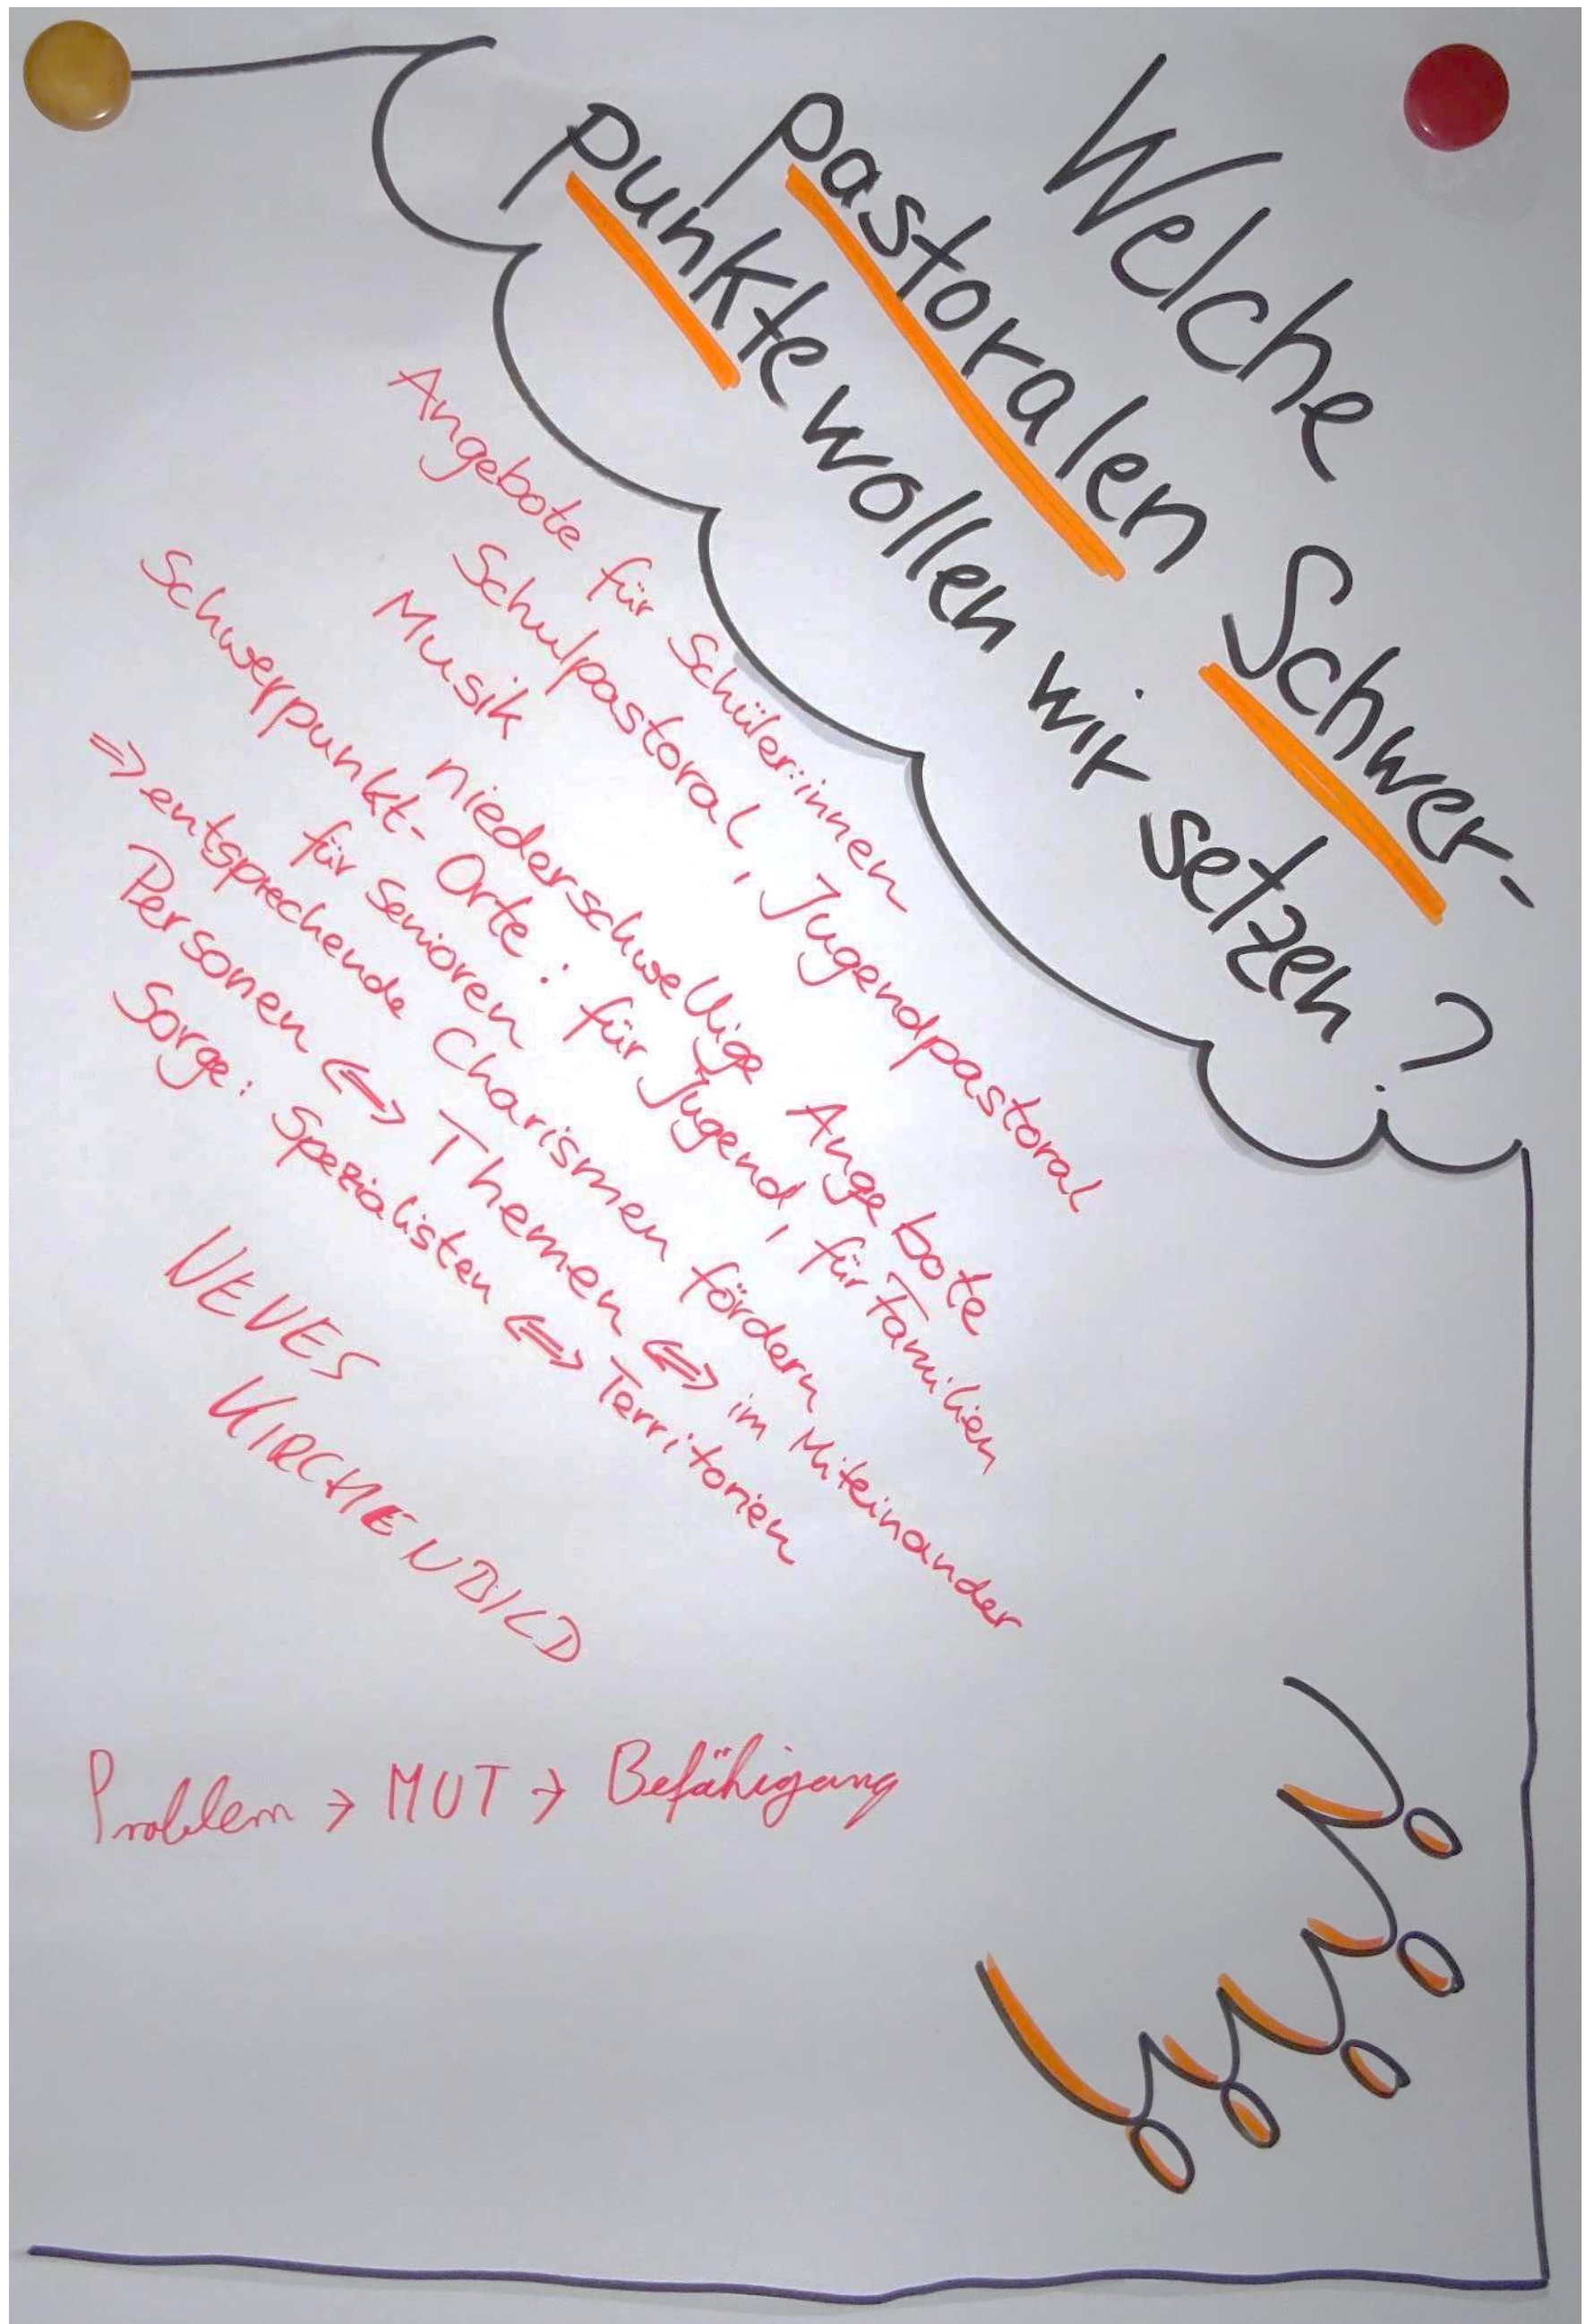 Welche
pastoralen Schwer-
punkte wollen wir setzen?
Angebote für Schüler:innen
Schulpastoral, Jugendpastoral
Musik
niederschwellige Angebote
Schwerpunkt-Orte: für Jugend, für Familien
für Senioren
⇒ entsprechende Charismen fördern
Personen ⇔ Themen ⇔ im Miteinander
Sorge: Spezialisten ⇔ Territorien
NEUES
KIRCHENBILD
Problem → MUT → Befähigung